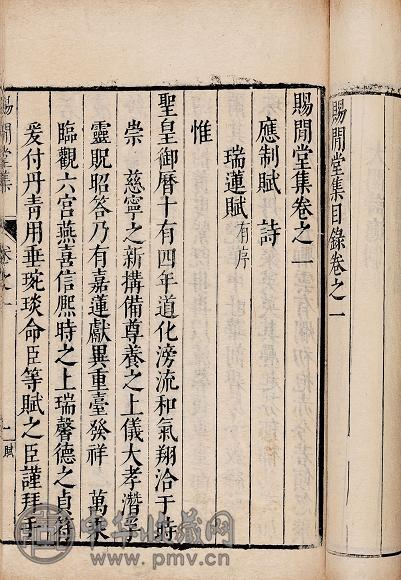 賜閒堂集目錄卷之一
賜閒堂集卷之一
應制賦 詩
瑞蓮賦有序
惟
聖皇御曆十有四年道化滂流和氣翔洽于時
崇 慈寧之新搆備尊養之上儀大孝潛孚
靈貺昭答乃有嘉蓮獻異重臺發祥 萬乘
臨觀六宮燕喜信熈時之上瑞馨德之貞符
爰付丹青用垂琬琰命臣等賦之臣謹拜手
賜閒堂集
卷之一
一
賦
中华收藏网
www.pmv.cn